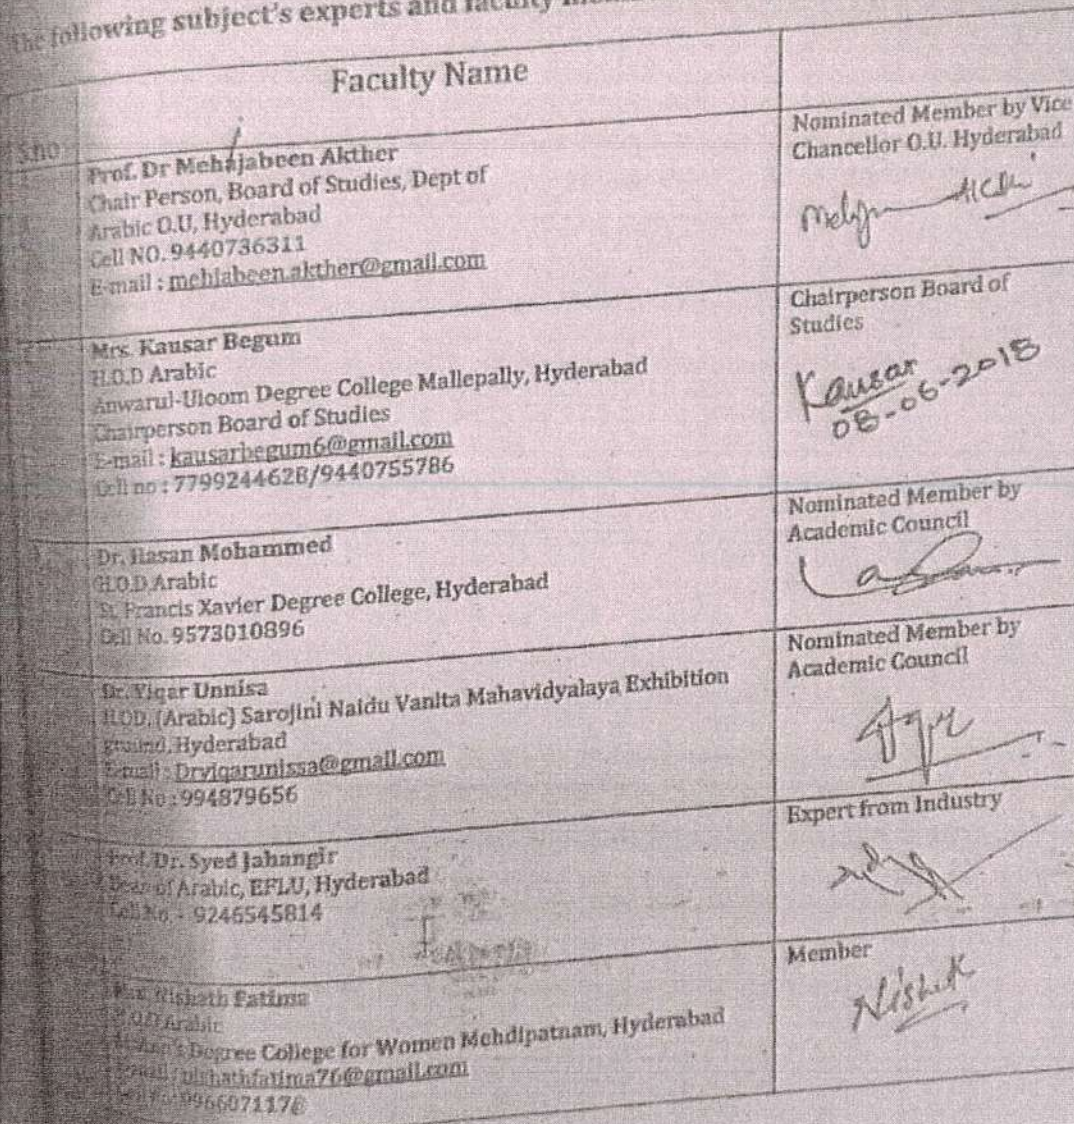 The following subject's experts and faculty
Faculty Name
S.no
Prof. Dr Mehajabeen Akther
Chair Person, Board of Studies, Dept of
Arabic O.U, Hyderabad
Cell NO. 9440736311
E-mail : mehjabeen.akther@gmail.com
Nominated Member by Vice
Chancellor O.U. Hyderabad
Mrs. Kausar Begum
H.O.D Arabic
Anwarul-Uloom Degree College Mallepally, Hyderabad
Chairperson Board of Studies
E-mail : kausarbegum6@gmail.com
Cell no : 7799244628/9440755786
Chairperson Board of
Studies
Kausar
08-06-2018
Dr. Hasan Mohammed
H.O.D.Arabic
St. Francis Xavier Degree College, Hyderabad
Cell No. 9573010896
Nominated Member by
Academic Council
Dr. Viqar Unnisa
HOD, (Arabic) Sarojini Naidu Vanita Mahavidyalaya Exhibition
ground, Hyderabad
E-mail : Drviqarunissa@gmail.com
Cell No : 994879656
Nominated Member by
Academic Council
Prof. Dr. Syed Jahangir
Dean of Arabic, EFLU, Hyderabad
Cell No. - 9246545814
Expert from Industry
Nishath Fatima
H.O.D Arabic
St. Ann's Degree College for Women Mehdipatnam, Hyderabad
E-mail : nishathfatima76@gmail.com
Cell no: 9966071178
Member
Nishat